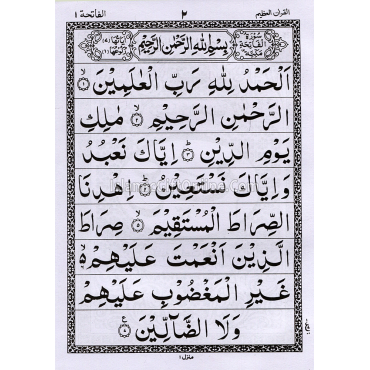 الفاتحة ١ ٢ القرآن العظیم
سُوْرَةُ الْفَاتِحَةِ مَكِّيَّةٌ بِسْمِ اللّٰهِ الرَّحْمٰنِ الرَّحِيْمِ
اَلْحَمْدُ لِلّٰهِ رَبِّ الْعٰلَمِيْنَ ۙ﴿١﴾
الرَّحْمٰنِ الرَّحِيْمِ ۙ﴿٢﴾ مٰلِكِ
يَوْمِ الدِّيْنِ ؕ﴿٣﴾ اِيَّاكَ نَعْبُدُ
وَاِيَّاكَ نَسْتَعِيْنُ ؕ﴿٤﴾ اِهْدِنَا
الصِّرَاطَ الْمُسْتَقِيْمَ ۙ﴿٥﴾ صِرَاطَ
الَّذِيْنَ اَنْعَمْتَ عَلَيْهِمْ ۙ
غَيْرِ الْمَغْضُوْبِ عَلَيْهِمْ
وَلَا الضَّآلِّيْنَ ﴿٧﴾
منزل ١